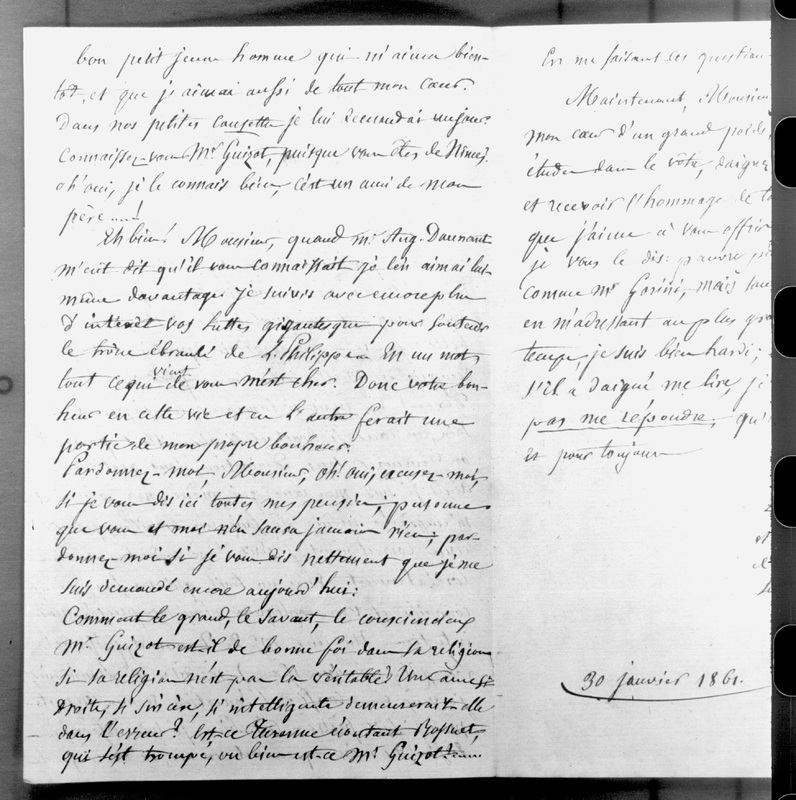 bon petit jeune homme qui m'aima bien-
tôt, et que j'aimai aussi de tout mon cœur.
Dans nos petites causettes je lui demandai un jour:
Connaissez-vous Mr Guizot, puisque vous êtes de Nimes?
oh! oui, je le connais bien, c'est un ami de mon
père....!
Eh bien! Monsieur, quand Mr Aug. Daunant
m'eût dit qu'il vous connaissait je l'en aimai lui-
même davantage. Je suivis avec encore plus
d'intérêt vos luttes gigantesques pour soutenir
le trône ébranlé de L. Philippe. En un mot,
tout ce qui vient de vous m'est cher. Donc votre bon-
heur en cette vie et en l'autre ferait une
partie de mon propre bonheur.
Pardonnez-moi, Monsieur, oh! oui, excusez-moi,
si je vous dis ici toutes mes pensées; personne
que vous et moi n'en saura jamais rien; par-
donnez-moi si je vous dis nettement que je me
suis demandé encore aujourd'hui:
Comment le grand, le savant, le consciencieux
Mr Guizot est-il de bonne foi dans sa religion
si sa religion n'est pas la véritable? Une âme si
droite, si sincère, si intelligente demeurerait-elle
dans l'erreur? Est-ce Turenne écoutant Bossuet,
qui s'est trompé, ou bien est-ce Mr Guizot?
En me faisant ces question
Maintenant, Monsieu
mon cœur d'un grand poids,
étudier dans le vôtre, daignez
et recevoir l'hommage de
que j'aime à vous offrir
je vous le dis: pauvre
comme Mr Gorini, mais
en m'adressant au plus
temps, je suis bien hardi;
s'il a daigné me lire, j
pas me répondre, qu'
et pour toujours
30 janvier 1861.